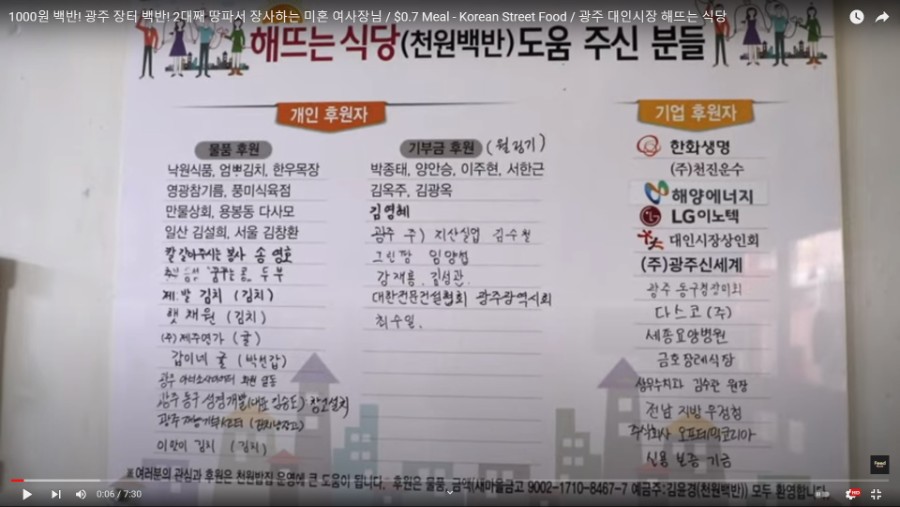 1000원 백반! 광주 장터 백반! 2대째 땅파서 장사하는 미혼 여사장님 / $0.7 Meal - Korean Street Food / 광주 대인시장 해뜨는 식당
해뜨는 식당(천원백반) 도움 주신 분들
개인 후원자
물품 후원
낙원식품, 엄뽀김치, 한우목장
영광참기름, 풍미식육점
만물상회, 용봉동 다사모
일산 김설희, 서울 김창환
칼 갈아주시는 봉사 송영호
두부
김치 (김치)
햇채원 (김치)
(주)제주연가 (귤)
갑이네 귤 (박천갑)
광주
광주 동구
광주
김치 (김치)
기부금 후원 (월정기)
박종태, 양안승, 이주현, 서한근
김옥주, 김광옥
김영혜
광주 주) 지산실업 김수철
그린팜 임양섭
강재홍, 김성관
대한전문건설협회 광주광역시회
최수일.
기업 후원자
한화생명
(주)천진운수
해양에너지
LG이노텍
대인시장상인회
(주)광주신세계
광주 동구청
다스코 (주)
세종요양병원
금호장례식장
김수관 원장
전남 지방 우정청
주식회사
신용보증기금
※ 여러분의 관심과 후원은 천원밥집 운영에 큰 도움이 됩니다. 후원은 물품, 금액(새마을금고 9002-1710-8467-7 예금주:김윤경(천원백반)) 모두 환영합니다
0:06 / 7:30
HD